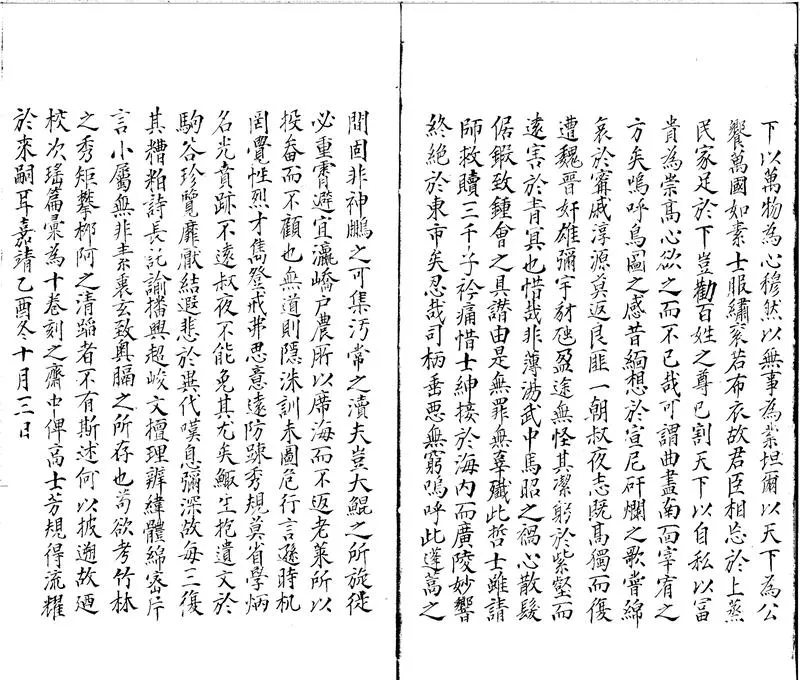 下以萬物為心穆然以無事為業坦爾以天下為公
饗萬國如素士服繡衮若布衣故君臣相忘於上蒸
民家足於下豈勸百姓之尊已割天下以自私以富
貴為崇髙心欲之而不已哉可謂曲盡南面宰宥之
方矣嗚呼鳥圖之感昔緬想於宣尼矸爛之歌嘗綿
哀於甯戚淳源莫返良匪一朝叔夜志既髙獨而復
遭魏晉奸雄彌宇豺虺盈途無怪其潔躬於紫壑而
遠害於青冥也惜哉非薄湯武中馬昭之禍心散髮
倨鍛致鍾會之具譖由是無罪無辜殲此哲士雖請
師救贖三千子衿痛惜士紳接於海内而廣陵妙響
終絕於東市矣忍哉司柄垂惡無窮嗚呼此蓬蒿之
間固非神鵬之可集汚常之瀆夫豈大鯤之所旋從
必重霄避宜瀛嶠户農所以席海而不返老萊所以
投畚而不顧也無道則隱洙訓未圖危行言遜時机
罔覺性烈才雋登戒弗思意遠防踈秀規莫省學炳
名光賁跡不遠叔夜不能免其尤矣鯫生抱遺文於
駒谷珍覽靡厭結遐悲於異代嘆息彌深故每三復
其糟粕詩長託諭播興超峻文檀理辨緯體綿密片
言小屬無非素裏玄致奧膈之所存也苟欲考竹林
之秀矩攀梛阿之清蹈者不有斯述何以披遡故廼
校次瑤篇彙為十卷刻之齋中俾高士芳規得流耀
於來嗣耳嘉靖乙酉冬十月三日